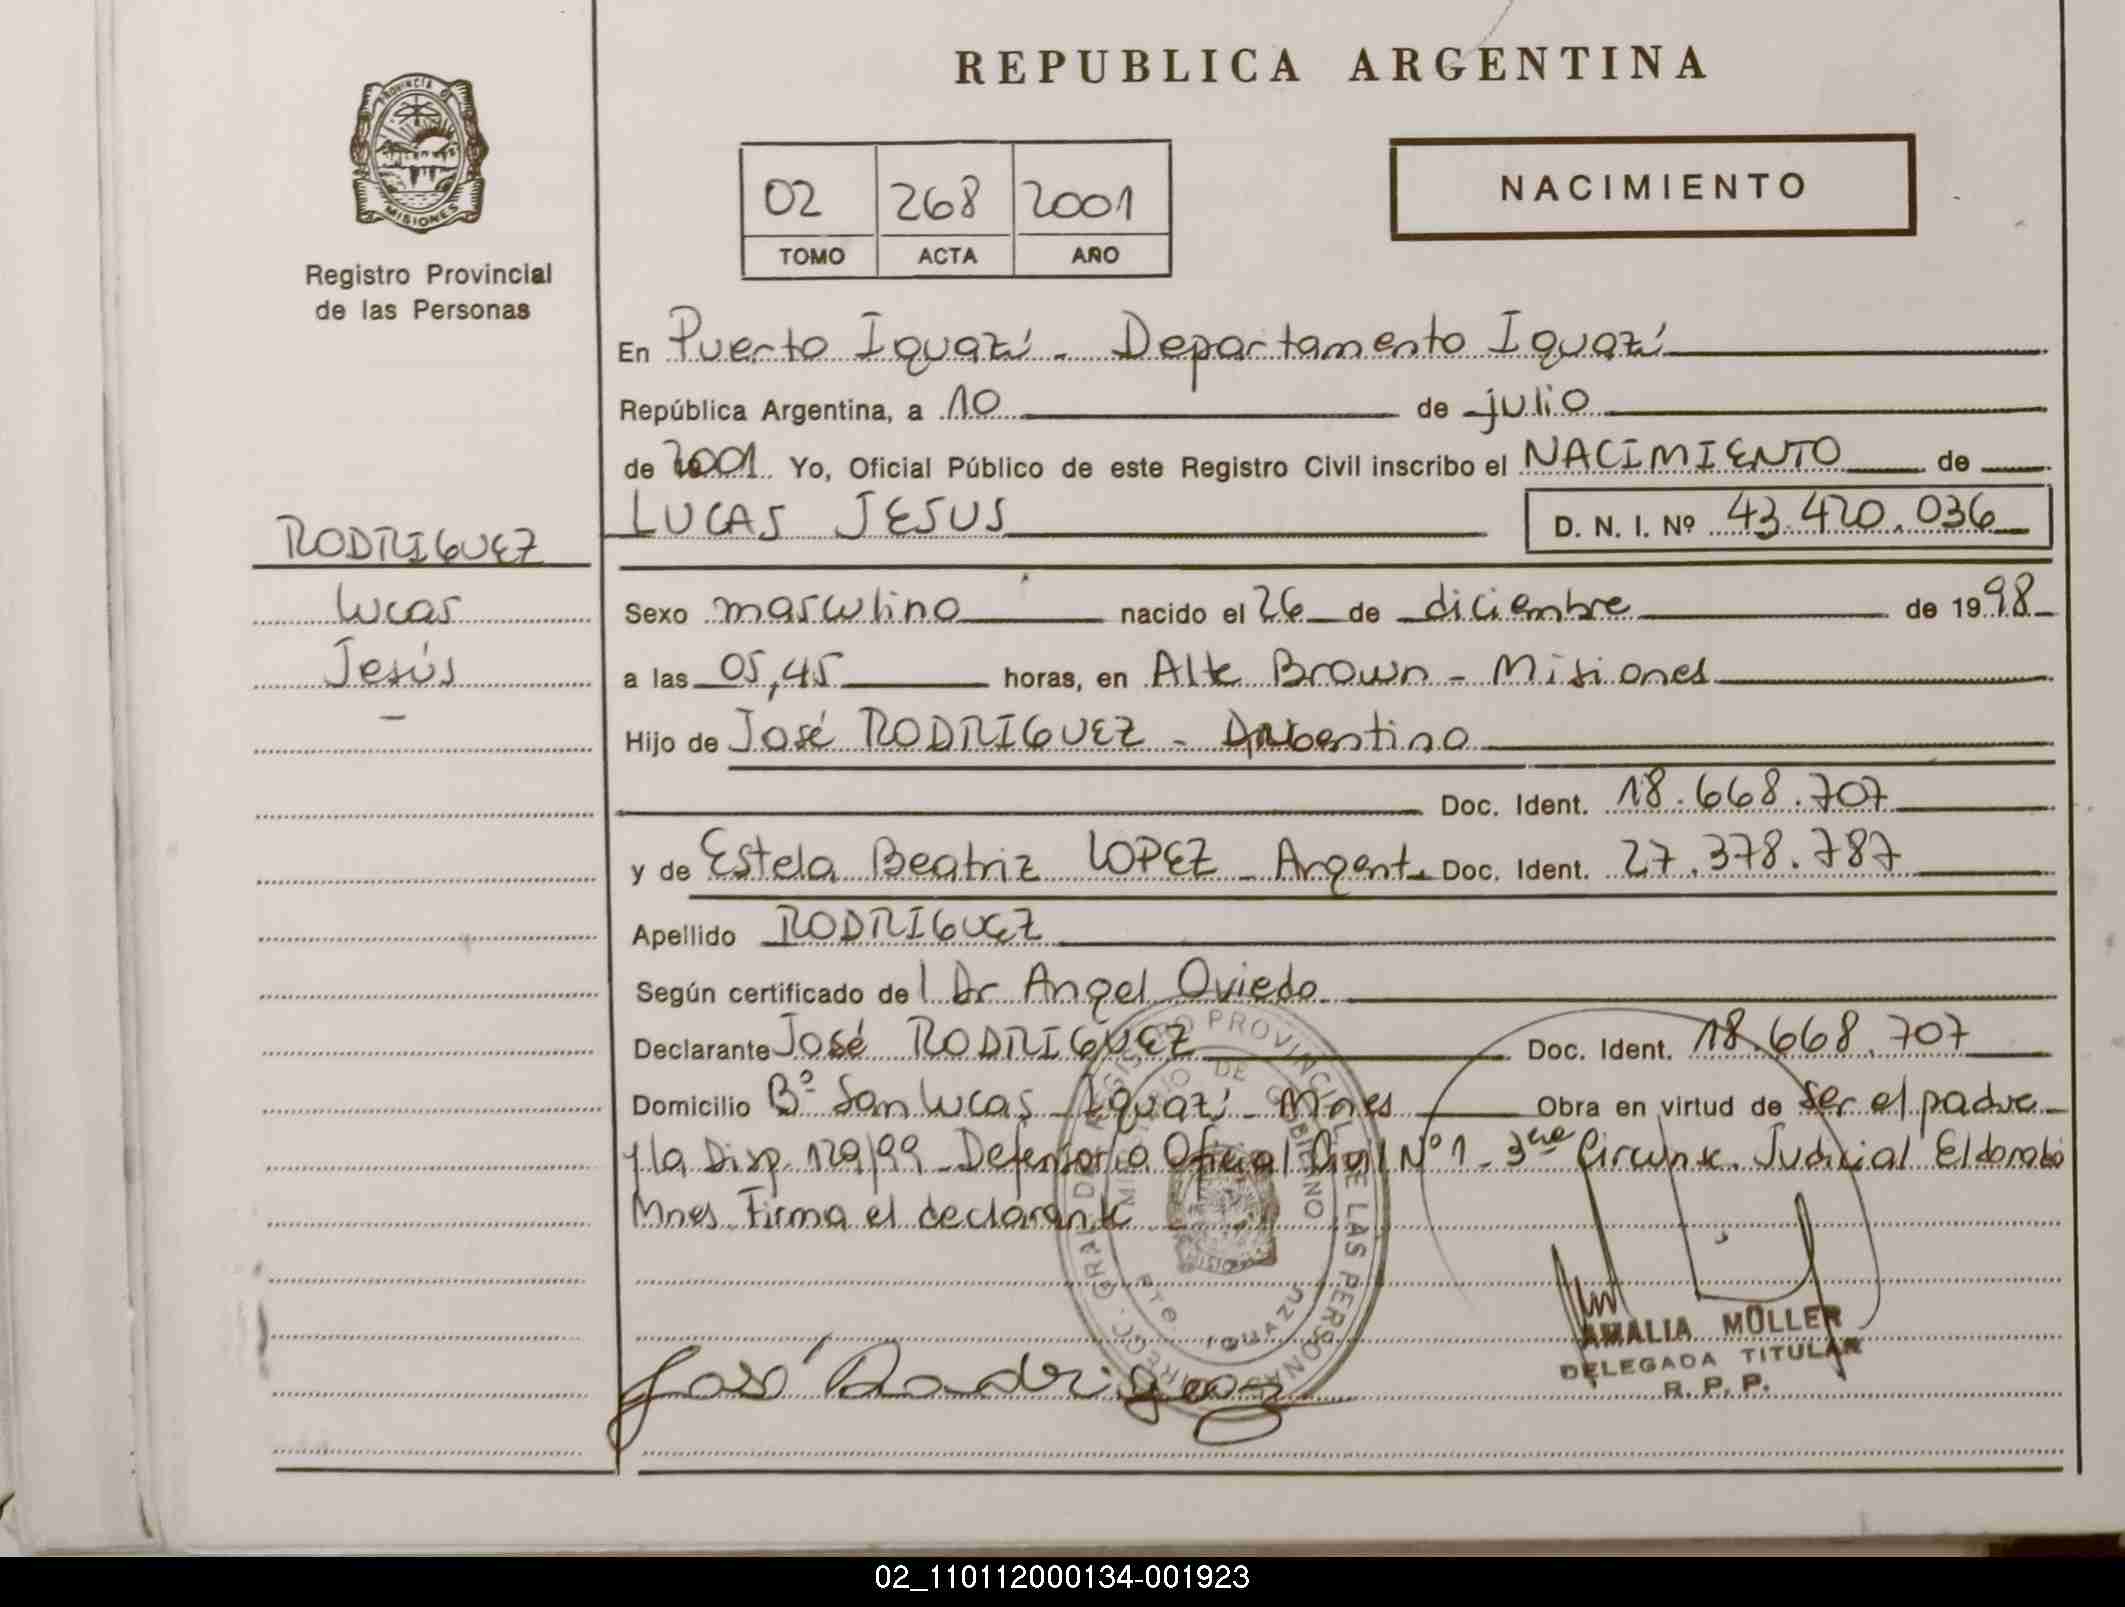 PROVINCIA D
MISIONES
Registro Provincial
de las Personas
RODRIGUEZ
Lucas
Jesús
REPUBLICA ARGENTINA
02 268 2001
TOMO ACTA AÑO
NACIMIENTO
En Puerto Iguazú - Departamento Iguazú
República Argentina, a 10 de julio
de 2001 Yo, Oficial Público de este Registro Civil inscribo el NACIMIENTO de
LUCAS JESUS D. N. I. Nº 43.420.036
Sexo masculino nacido el 26 de diciembre de 1998
a las 05,45 horas, en Alte Brown - Misiones
Hijo de José RODRIGUEZ - Argentino
Doc. Ident. 18.668.707
y de Estela Beatriz LOPEZ - Argent. Doc. Ident. 27.378.787
Apellido RODRIGUEZ
Según certificado de l Dr Angel Oviedo
Declarante José RODRIGUEZ Doc. Ident. 18.668.707
Domicilio Bº San Lucas - Iguazú - Mnes Obra en virtud de ser el padre
y la Disp. 129/99 - Defensoría Oficial Civil Nº 1 - 3era Circunsc. Judicial Eldorado
Mnes. Firma el declarante
REGISTRO PROVINCIAL DE LAS PERSONAS
MINISTERIO DE GOBIERNO
Pto IGUAZU
José Rodriguez
AMALIA MÜLLER
DELEGADA TITULAR
R. P. P.
02_110112000134-001923